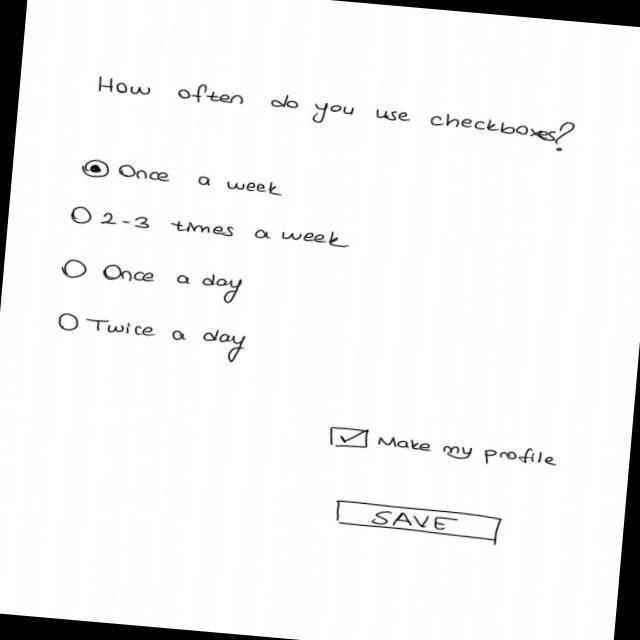 How often do you use checkboxes?
Once a week
2-3 times a week
Once a day
Twice a day
Make my profile
SAVE